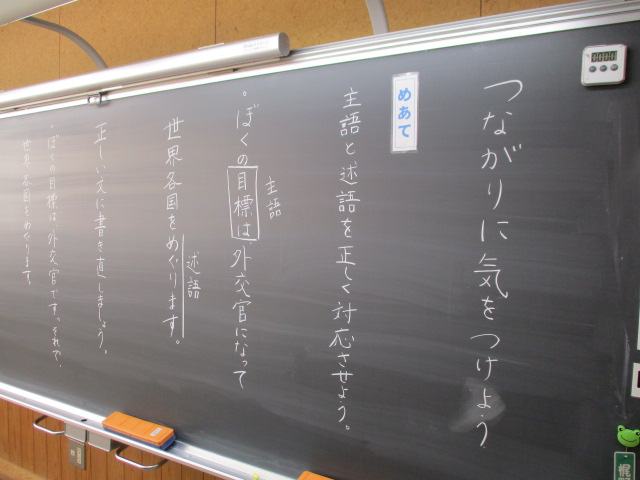 つながりに気をつけよう
めあて
主語と述語を正しく対応させよう。
主語
・ぼくの目標は外交官になって
世界各国をめぐります。
述語
正しい文に書き直しましょう。
・ぼくの目標は外交官です。それで、
世界各国をめぐります。